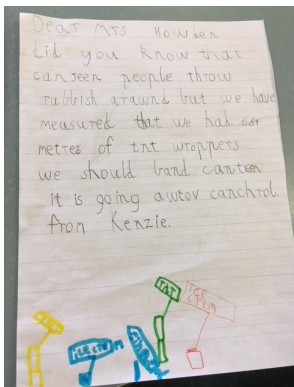 Dear Mrs Howden
Did you know that
canteen people throw
rubbish arawnd but we have
measured that we had 684
metres of tnt wroppers
we should band canteen
it is going autov canchrol.
from Kenzie.
TNT
ICE
CREM
ice cre m